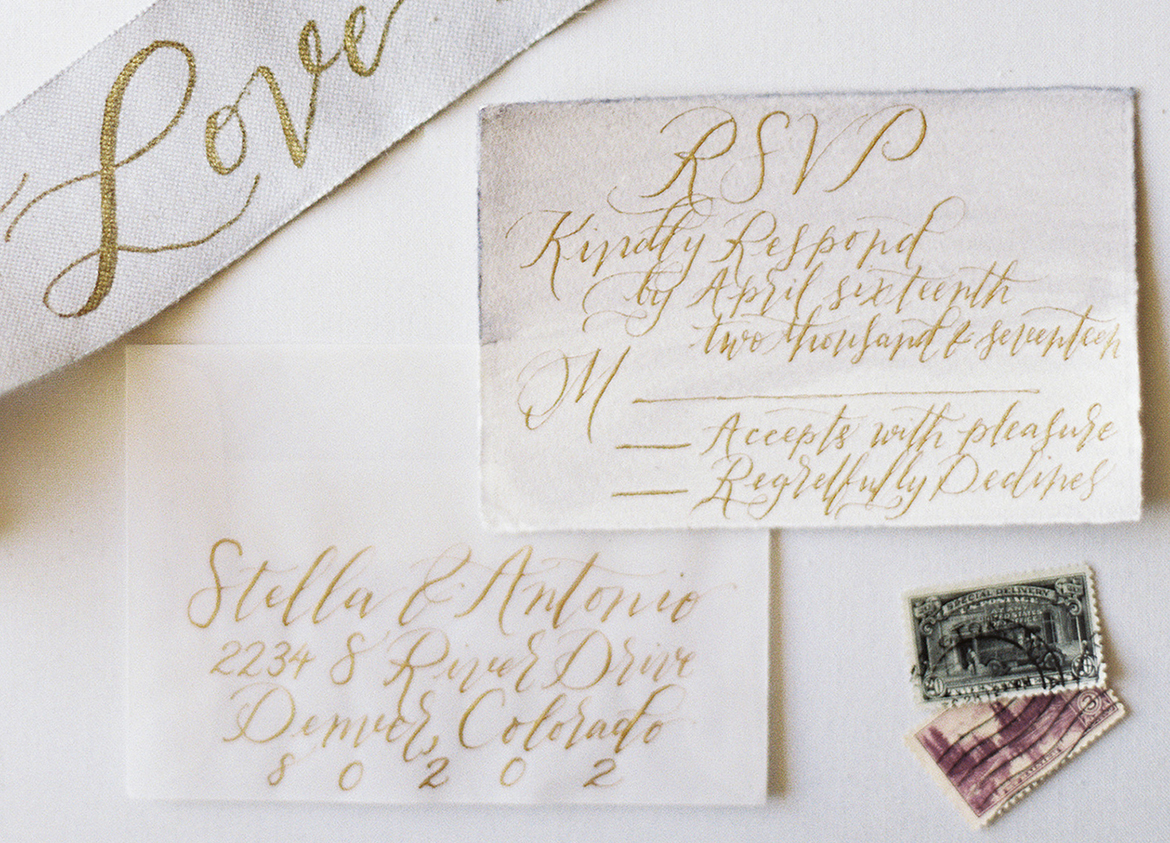 Love
RSVP
Kindly Respond
by April sixteenth
two thousand & seventeen
M
Accepts with pleasure
Regretfully Declines
Stella & Antonio
2234 S River Drive
Denver, Colorado
80202
SPECIAL DELIVERY
3